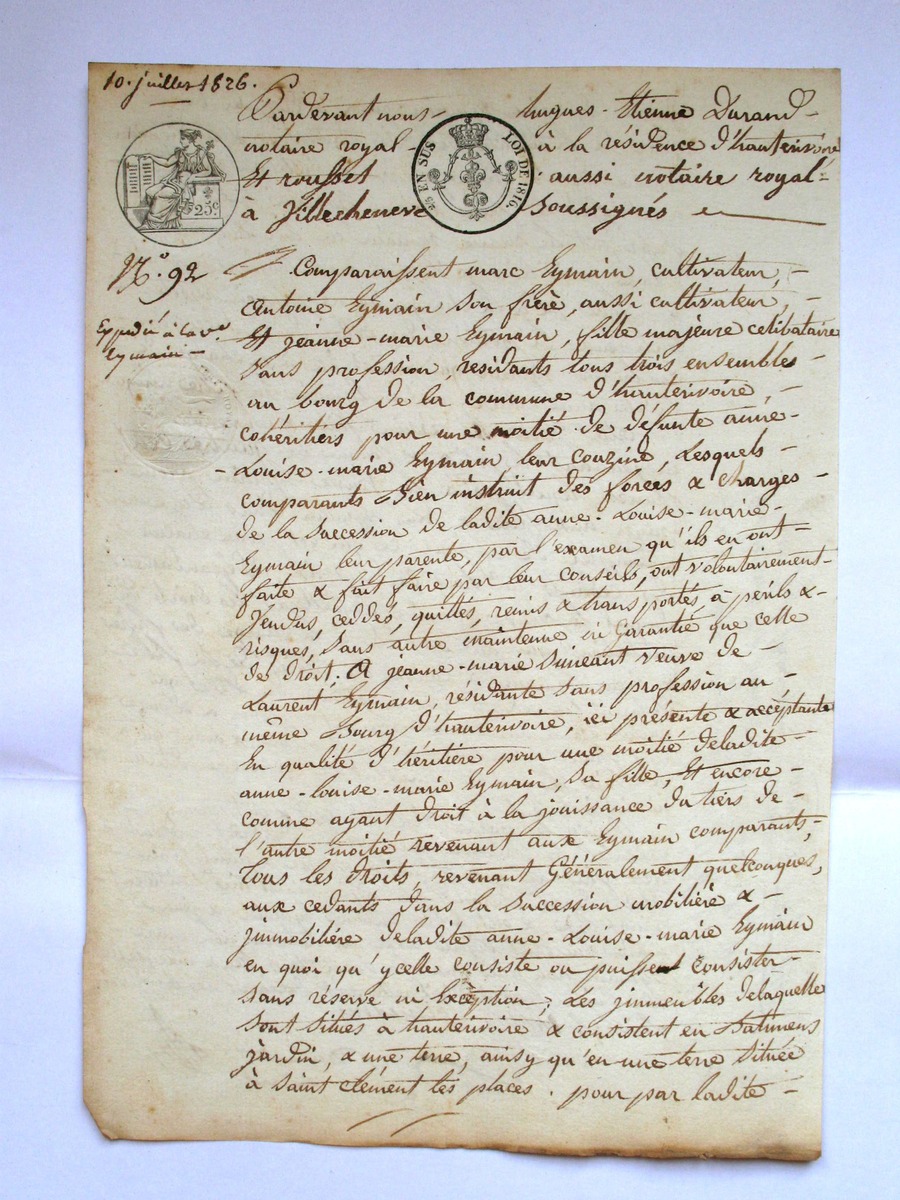 10. juillet 1826.
Pardevant nous hugues-Etienne Durand
notaire royal à la résidence d'hauterivoire
Et rousset aussi notaire royal
à Villecheneve soussignés
25 EN SUS
LOI DE 1816.
25c
N.o 92
Expedié à la ve.
Eymain
Comparaissent marc Eymain, cultivateur,
Antoine Eymain son frère, aussi cultivateur,
Et jeanne-marie Eymain, fille majeure celibataire
sans profession, residants tous trois ensembles
au bourg de la commune d'hauterivoire,
cohéritiers pour une moitié de défunte anne-
Louise-marie Eymain, leur couzine, Lesquels
comparants Bien instruit des forces & charges
de la succession de ladite anne-Louise-marie
Eymain leur parente, par l'examen qu'ils en ont
faite & fait faire par leur conseils, ont volontairement
Vendus, ceddés, quittés, remis & transportés, à périls &
risques, sans autre maintenue ni Garantie que celle
de droit. A jeanne-marie veuve de
Laurent Eymain, résidante sans profession au
même Bourg d'hauterivoire, ici présente & accéptante
En qualité d'héritière pour une moitié deladite
anne-louise-marie Eymain, sa fille, Et encore
comme ayant droit à la jouissance du tiers de
l'autre moitié revenant aux Eymain comparants,
Tous les droits, revenant Généralement quelconques,
aux cedants dans la succession mobilière &
jmmobilière deladite anne-Louise-marie Eymain
en quoi qu'ycelle consiste ou puissent consister
sans réserve ni Excéption; Les jmmeubles delaquelle
sont situés à hauterivoire & consistent en Batimens
jardin, & une terre, ainsy qu'en une terre située
à saint clément les places. pour par ladite